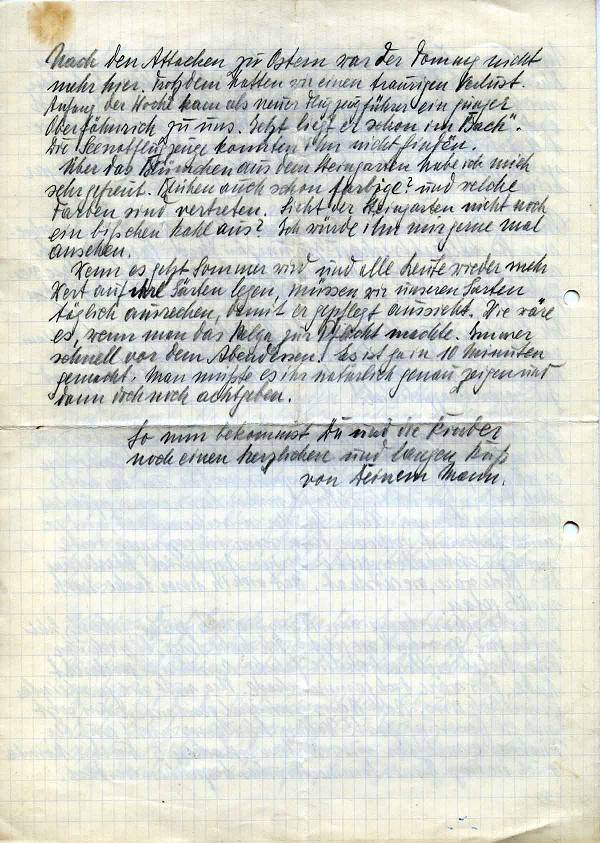 Nach den Attacken zu Ostern war der Tommy nicht
mehr hier. Trotzdem hatten wir einen traurigen Verlust.
Anfang der Woche kam als neuer Flugzeugführer ein junger
Oberfähnrich zu uns. Jetzt liegt er schon im „Bach".
Die Seenotflugzeuge konnten ihn nicht finden.
Über das Blümchen aus dem Steingarten habe ich mich
sehr gefreut. Blühen auch schon farbige? und welche
Farben sind vertreten. Sieht der Steingarten nicht noch
ein bißchen kahl aus? Ich würde ihn mir gerne mal
ansehen.
Wenn es jetzt Sommer wird und alle Leute wieder mehr
Wert auf ihre Gärten legen, müssen wir unseren Garten
täglich ausrechen, damit er gepflegt aussieht. Wie wäre
es, wenn man das Helga zur Pflicht machte. Immer
schnell vor dem Abendessen. Es ist ja in 10 Minuten
gemacht. Man müßte es ihr natürlich genau zeigen und
dann doch noch achtgeben.
So nun bekommst Du und die Kinder
noch einen herzlichen und langen Kuß
von Deinem Mann.